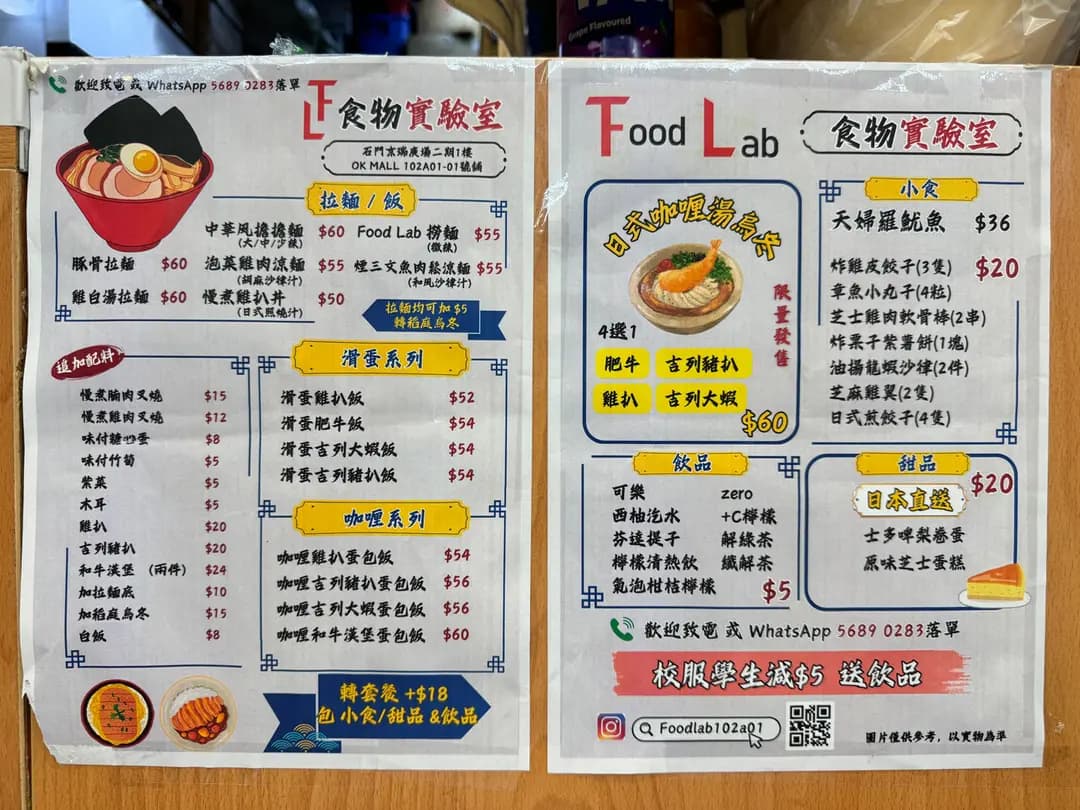 Grape Flavoured
歡迎致電 或 WhatsApp 5689 0283落單
食物實驗室
石門京瑞廣場二期1樓
OK MALL 102A01-01號舖
拉麵 / 飯
中華風擔擔麵 $60
(大/中/少辣)
Food Lab 撈麵 $55
(微辣)
豚骨拉麵 $60
泡菜雞肉涼麵 $55
(胡麻沙律汁)
煙三文魚肉鬆涼麵 $55
(和風沙律汁)
雞白湯拉麵 $60
慢煮雞扒丼 $50
(日式照燒汁)
拉麵均可加 $5
轉稻庭烏冬
追加配料
慢煮腩肉叉燒 $15
慢煮雞肉叉燒 $12
味付糖心蛋 $8
味付竹筍 $5
紫菜 $5
木耳 $5
雞扒 $20
吉列豬扒 $20
和牛漢堡 (兩件) $24
加拉麵底 $10
加稻庭烏冬 $15
白飯 $8
滑蛋系列
滑蛋雞扒飯 $52
滑蛋肥牛飯 $54
滑蛋吉列大蝦飯 $54
滑蛋吉列豬扒飯 $54
咖喱系列
咖喱雞扒蛋包飯 $54
咖喱吉列豬扒蛋包飯 $56
咖喱吉列大蝦蛋包飯 $56
咖喱和牛漢堡蛋包飯 $60
轉套餐 +$18
包 小食/甜品 &飲品
Food Lab
食物實驗室
日式咖喱湯烏冬
限量發售
4選1
肥牛 吉列豬扒
雞扒 吉列大蝦
$60
小食
天婦羅魷魚 $36
炸雞皮餃子(3隻) $20
章魚小丸子(4粒)
芝士雞肉軟骨棒(2串)
炸栗子紫薯餅(1塊)
油揚龍蝦沙律(2件)
芝麻雞翼(2隻)
日式煎餃子(4隻)
飲品
可樂 zero
西柚汽水 +C檸檬
芬達提子 解綠茶
檸檬清熱飲 纖解茶
氣泡柑桔檸檬 $5
甜品
日本直送 $20
士多啤梨卷蛋
原味芝士蛋糕
歡迎致電 或 WhatsApp 5689 0283落單
校服學生減$5 送飲品
Foodlab102a01
圖片僅供參考，以實物為準